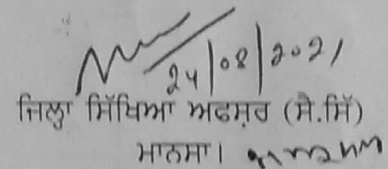 24/08/2021
ਜਿਲ੍ਹਾ ਸਿੱਖਿਆ ਅਫਸ਼ਰ (ਸੈ.ਸਿੱ)
ਮਾਨਸਾ।